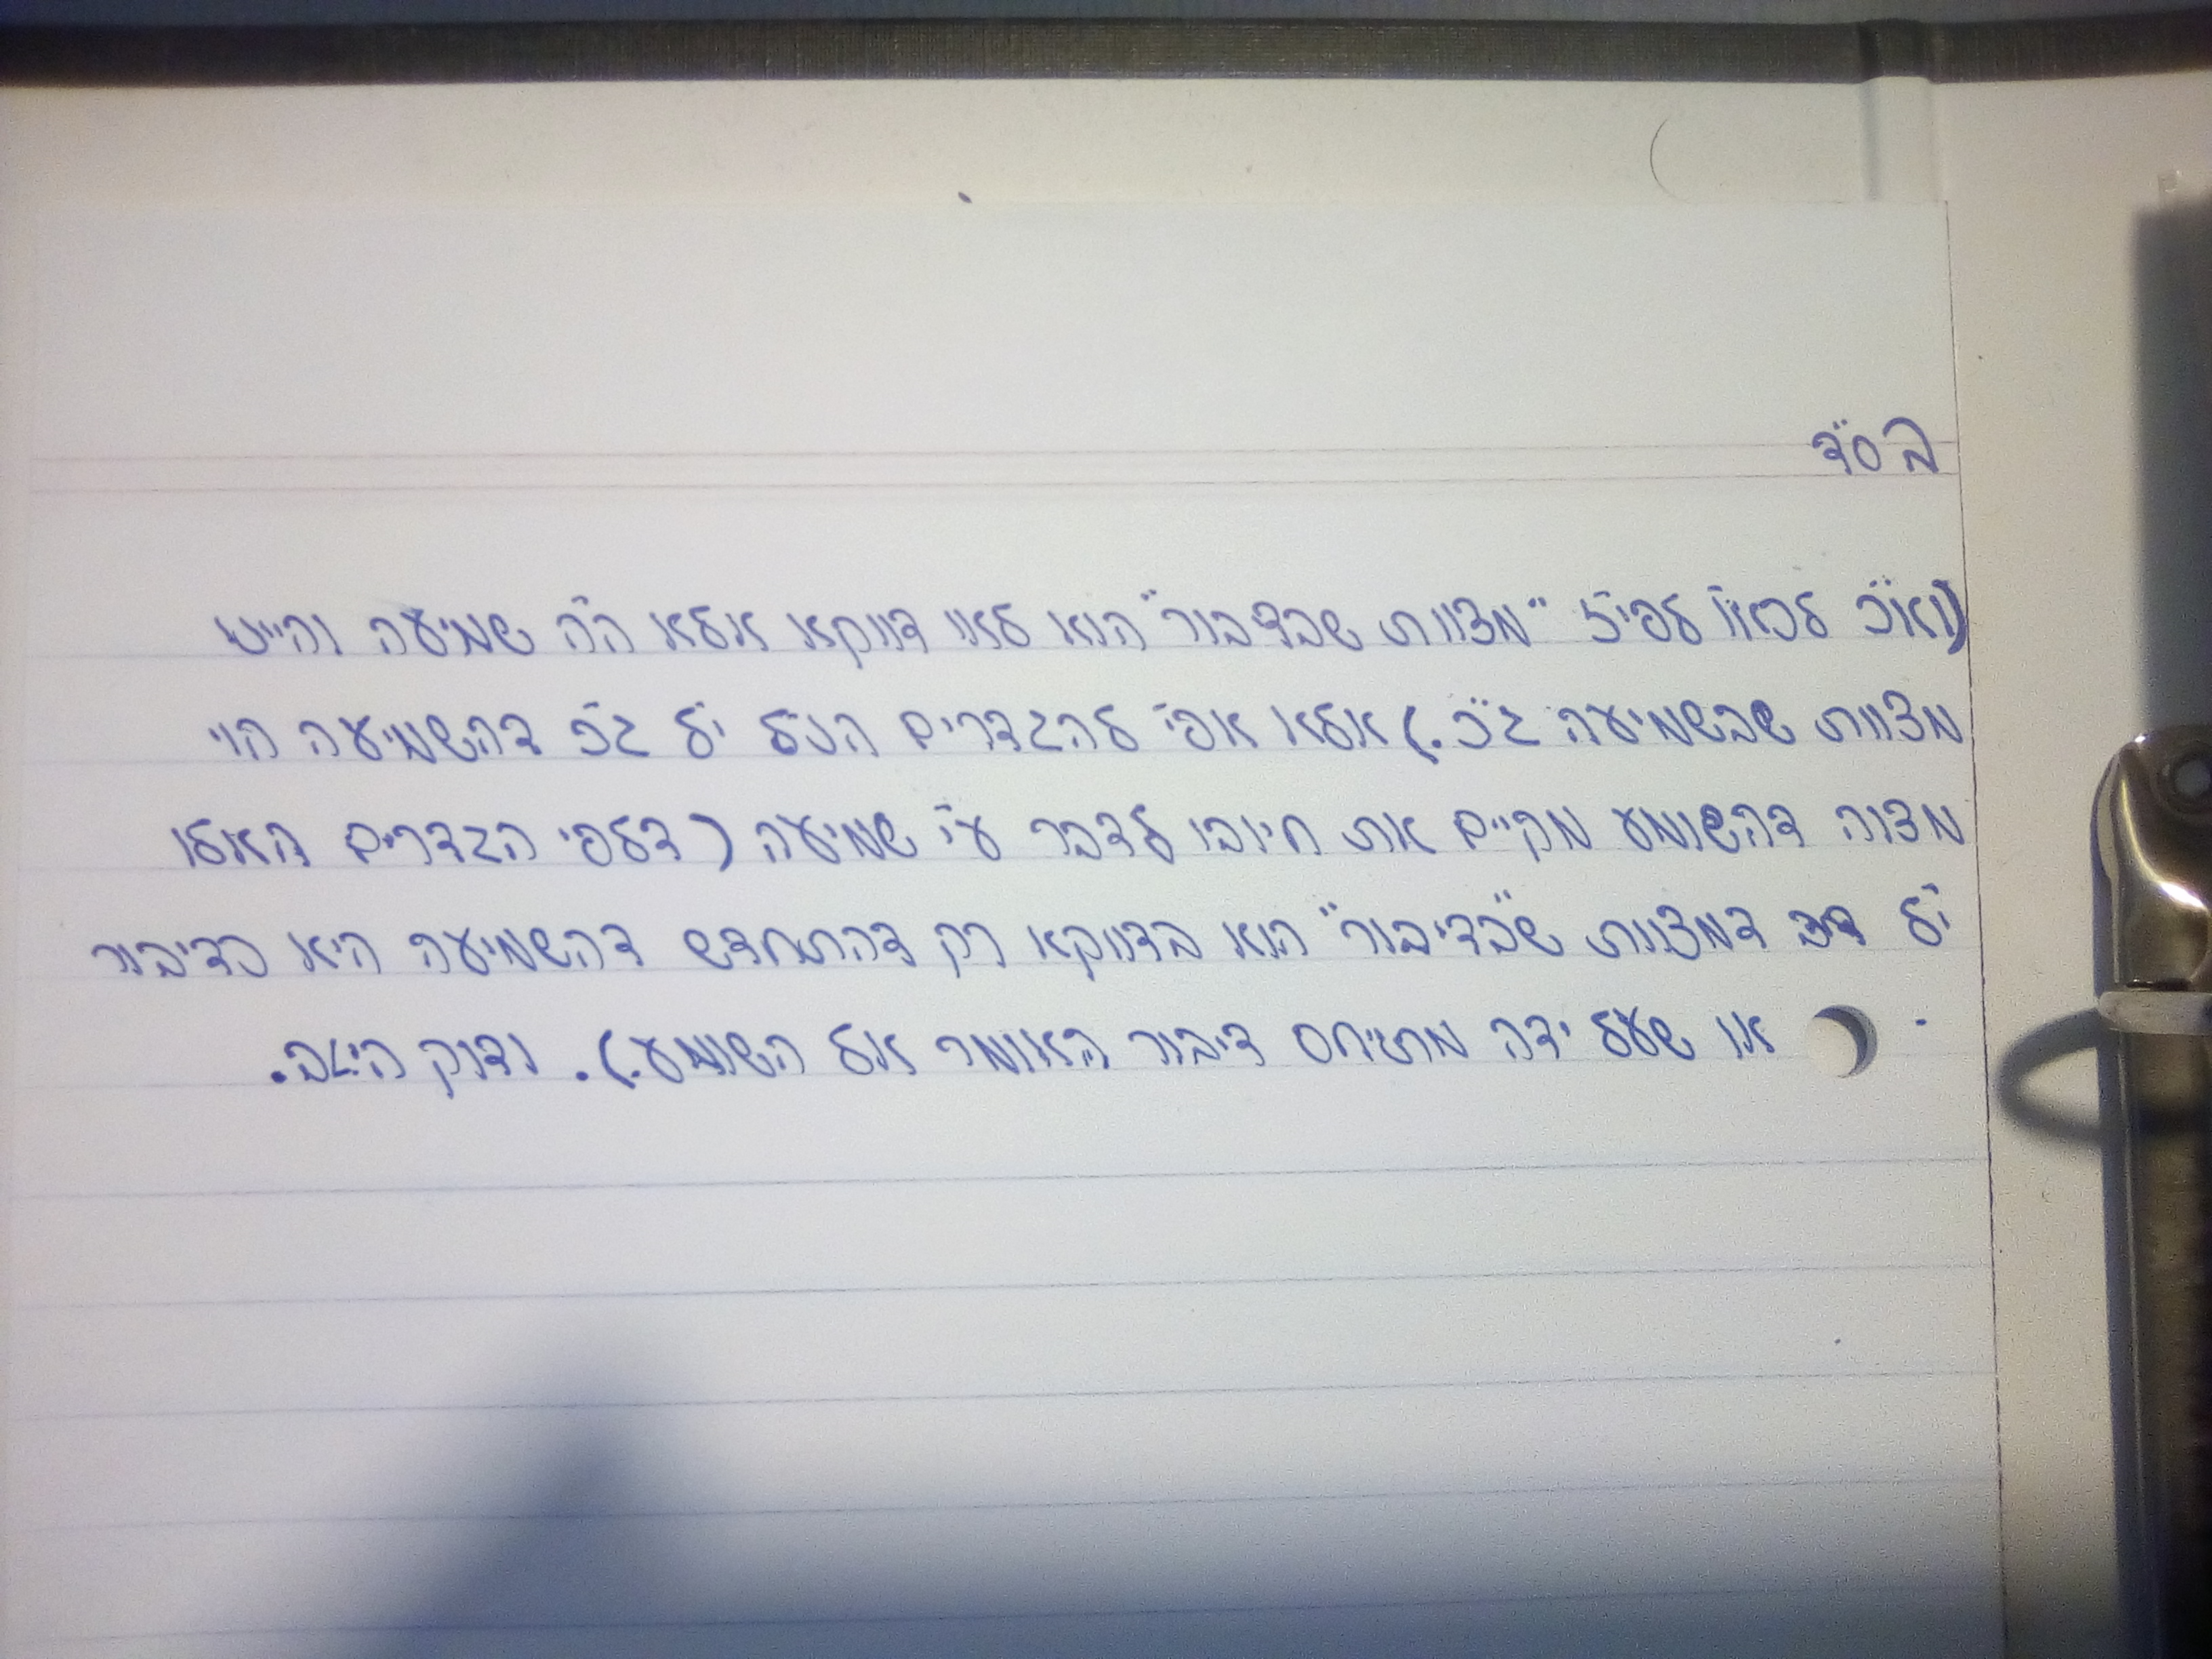 בס"ד
(וא"כ לכאו' לפי"ז "מצוות שבדיבור" הוא לאו דווקא אלא ה"ה שמיעה והייט
מצוות שבשמיעה ג"כ.) אלא אפי' להגדרים הנ"ל י"ל ג"כ דהשמיעה הוי
מצוה דהשומע מקיים את חיובו לדבר ע"י שמיעה (דלפי הגדרים האלו
י"ל דמצוות ש"בדיבור" הוא בדווקא רק דהתחדש דהשמיעה היא כדיבור
או שעל ידה מתיחס דיבור האומר אל השומע.). ודוק היטב.